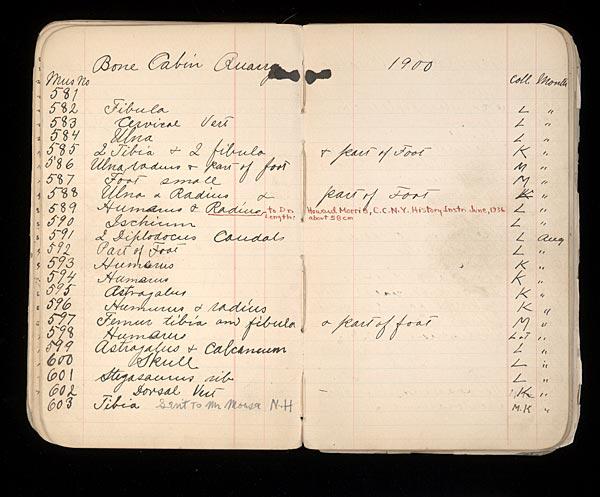 Bone Cabin Quarry 1900
Mus No Coll Month
581 "
582 Fibula L "
583 Cervical Vert L "
584 Ulna L "
585 2 Tibia & 2 fibula & part of Foot K "
586 Ulna radius & part of foot M "
587 Foot small M "
588 Ulna & Radius & part of Foot K "
589 Humerus & Radius, to Dr. Howard Morris, C.C.N.Y. History Instr. June, 1936 L "
length: about 58 cm
590 Ischium L "
591 2 Diplodocus Caudals L Aug
592 Part of Foot L "
593 Humerus K "
594 Humerus K "
595 Astragalus K "
596 Humerus & radius K "
597 Femur tibia and fibula & part of foot M "
598 Humerus "
599 Astragalus & Calcaneum L "
600 Skull L "
601 Stegasaurus rib L "
602 Dorsal Vert – K "
603 Tibia Sent to Mr N-H M.K "